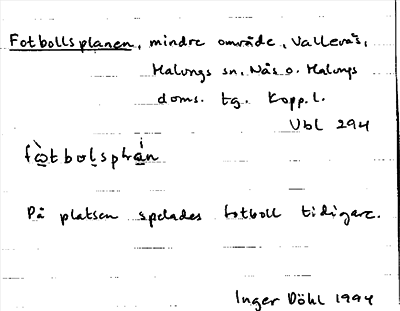 Fotbollsplanen, mindre område, Vallerås,
Malungs sn. Nås o. Malungs
doms. tg. Kopp. l.
Ubl 294
På platsen spelades fotboll tidigare.
Inger Döhl 1994